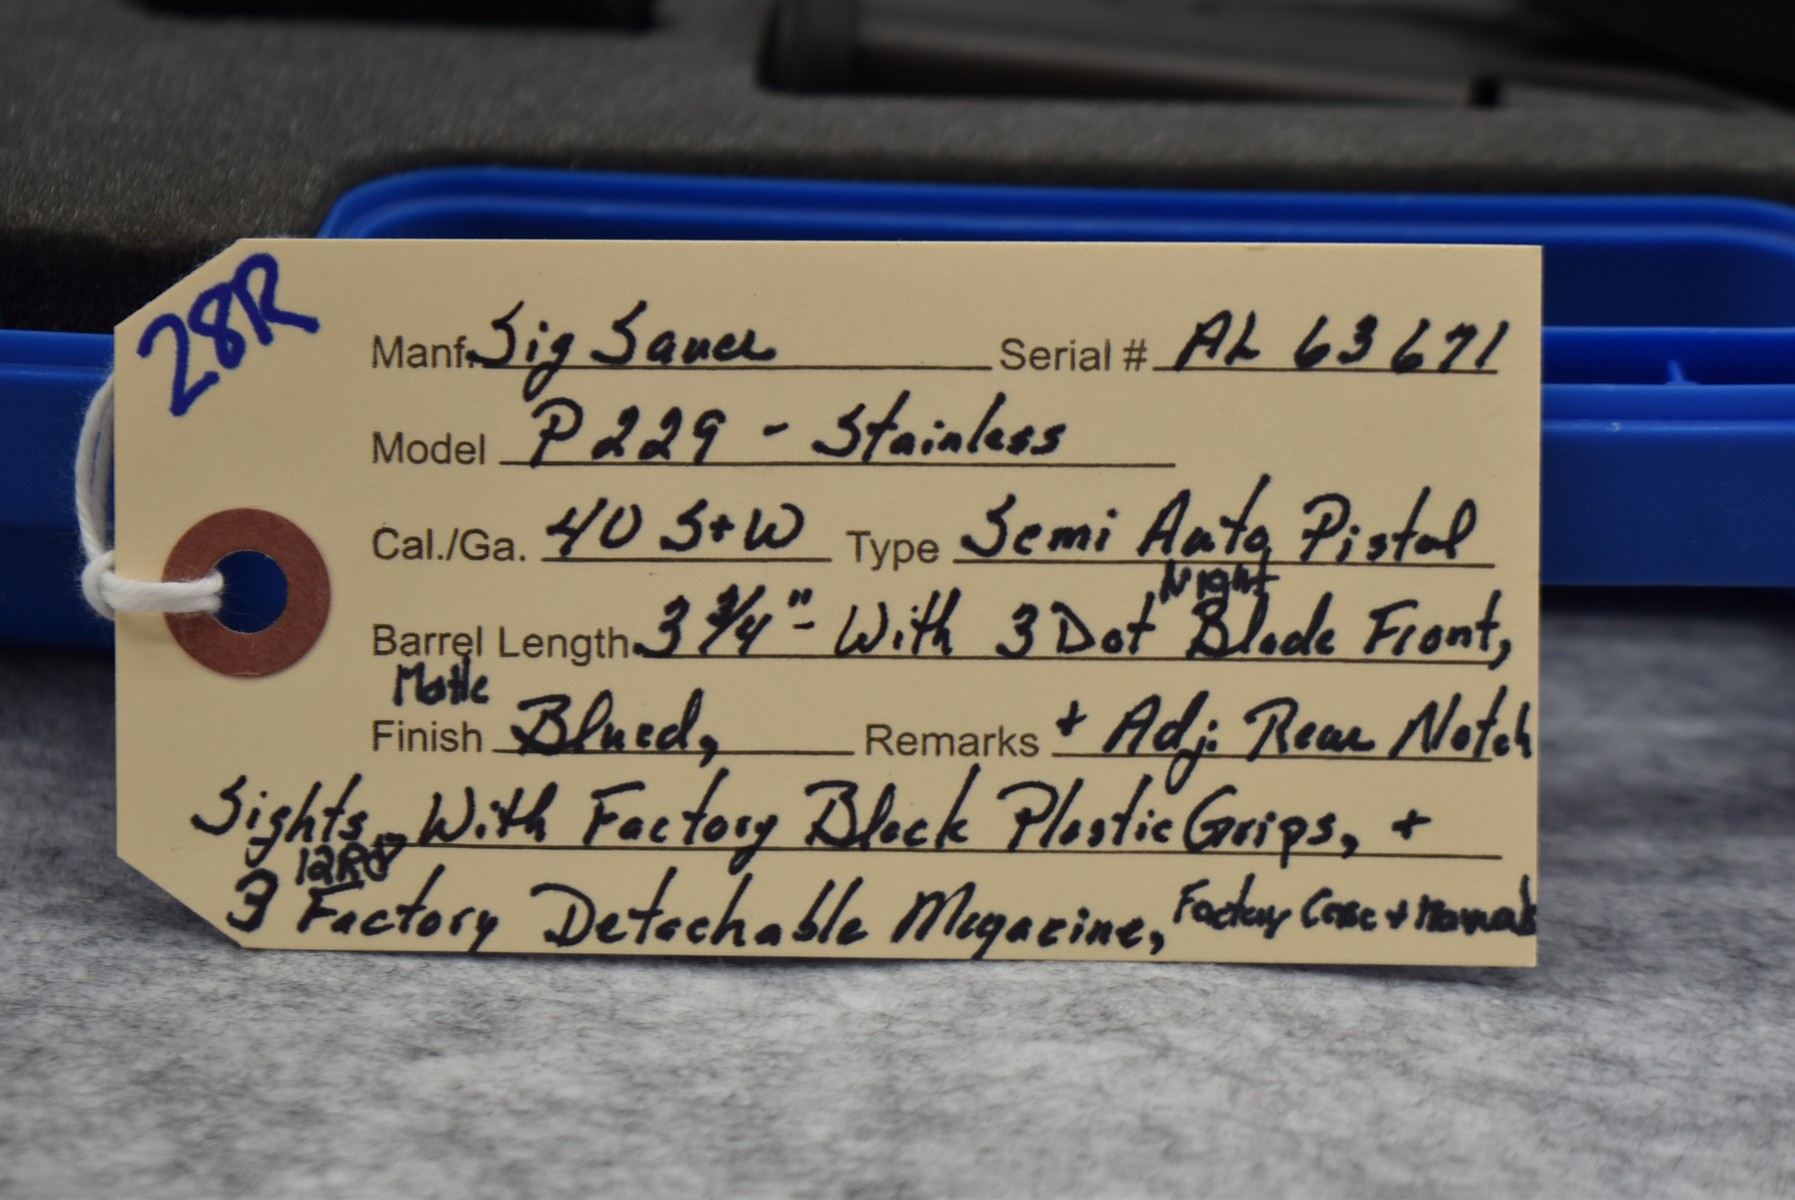 28R
Manf. Sig Sauer Serial # AL 63671
Model P229 - Stainless
Cal./Ga. 40 S+W Type Semi Auto Pistol
Night
Barrel Length 3 3/4" - With 3 Dot Blade Front,
Matte
Finish Blued, Remarks + Adj. Rear Notch
Sights - With Factory Black Plastic Grips, +
12RD
3 Factory Detachable Magazine, Factory Case + Manuals